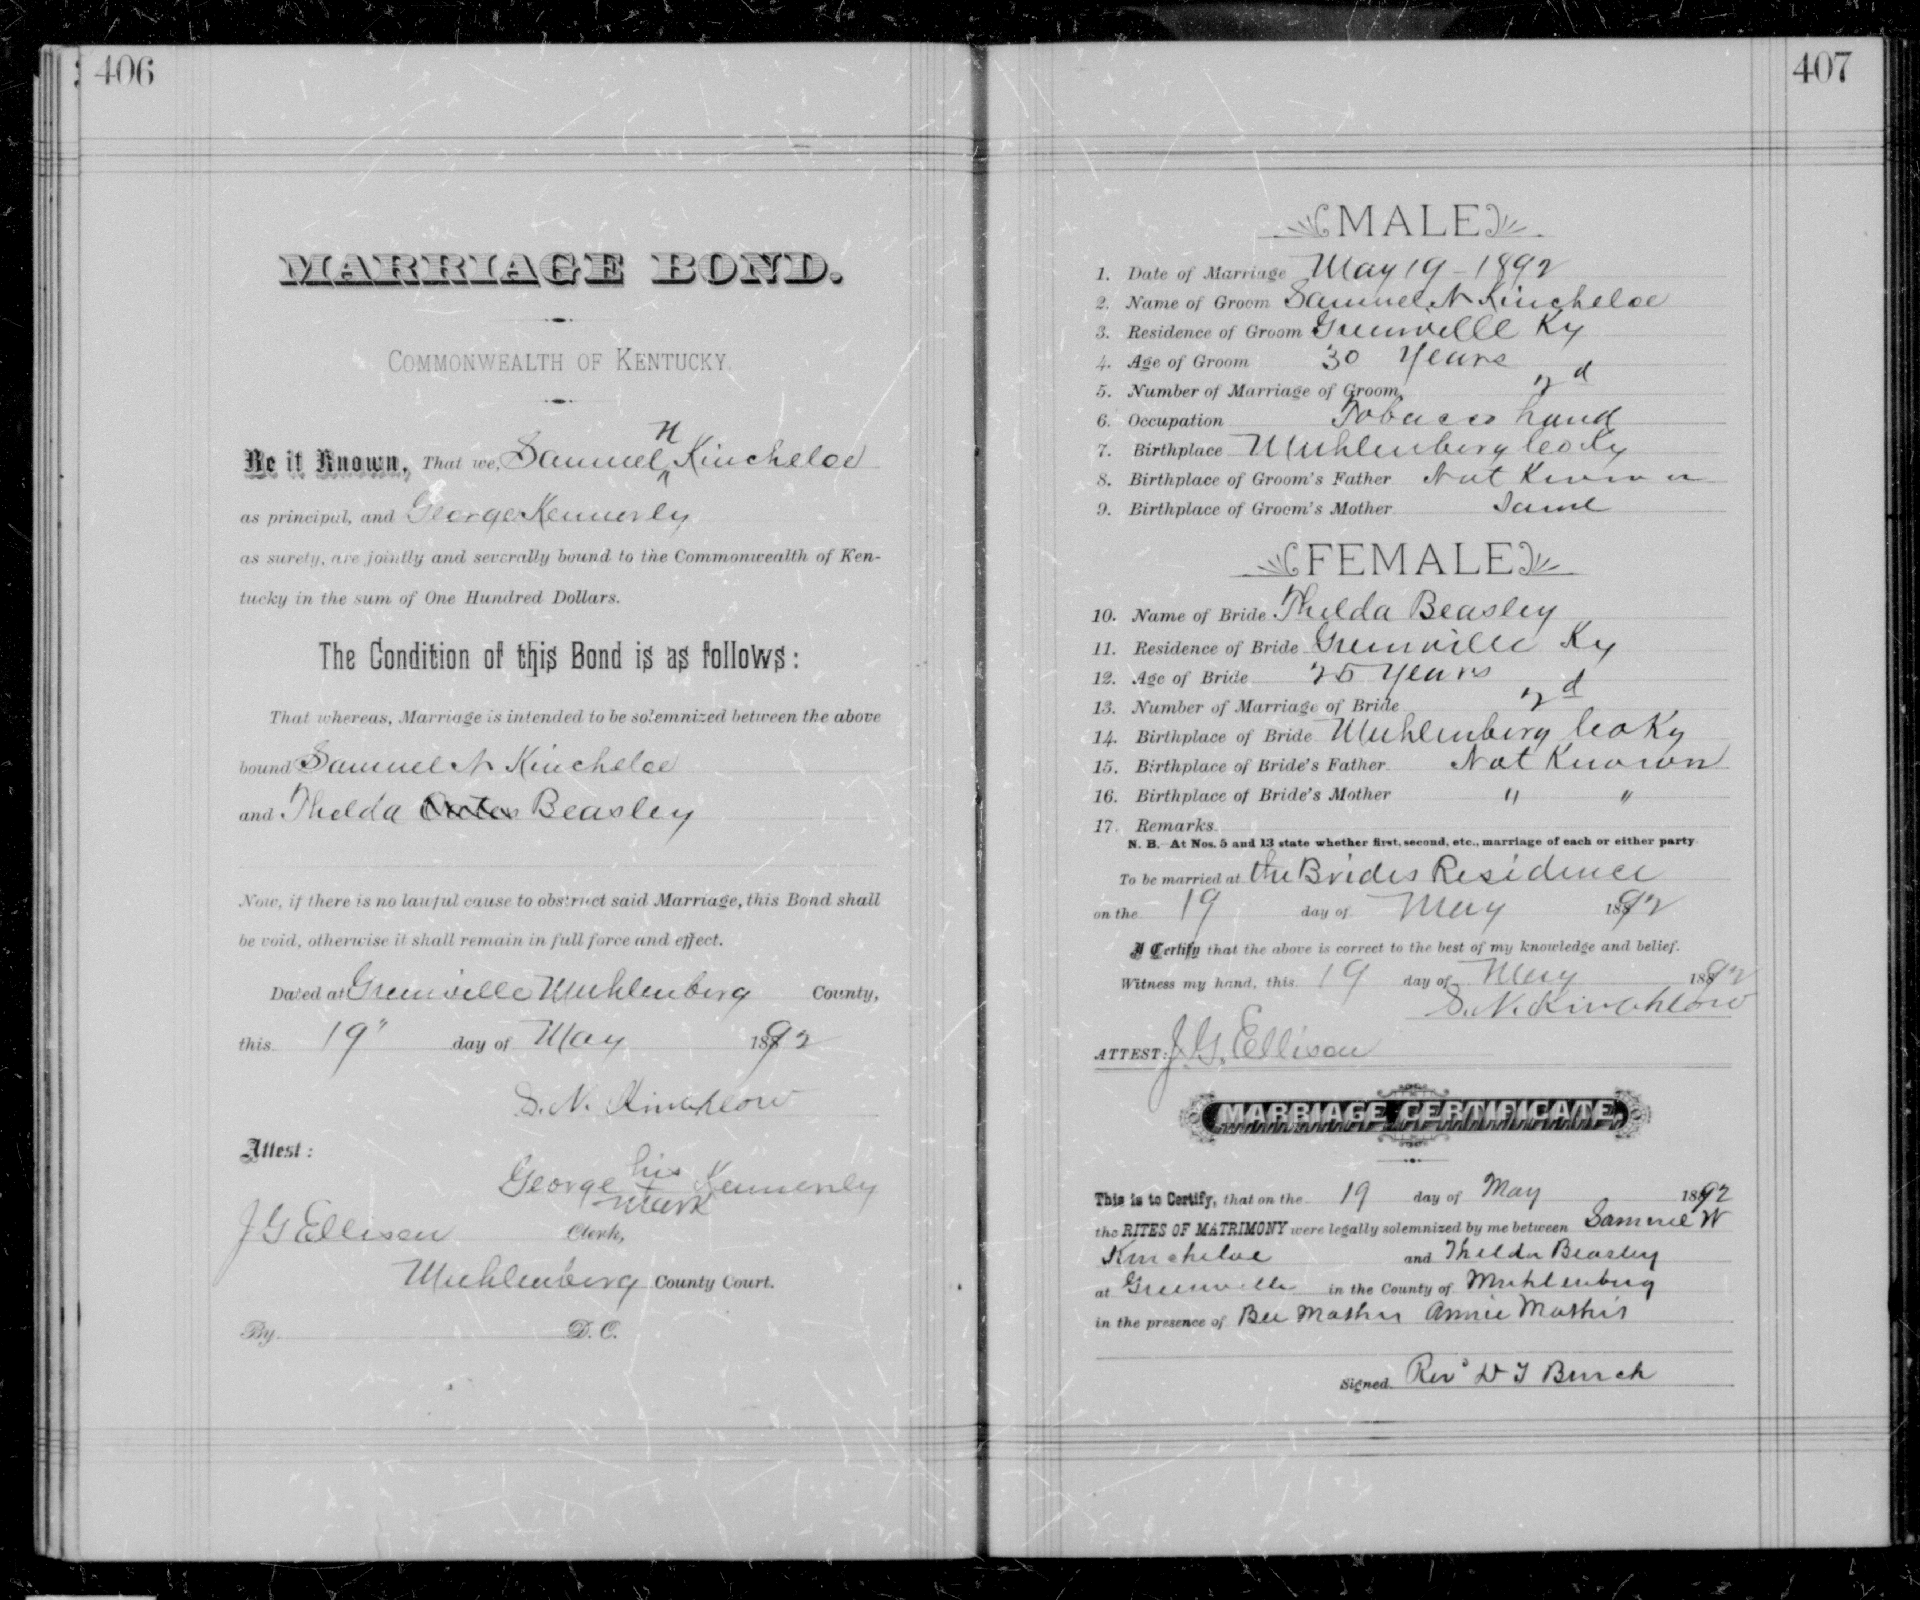 406
MARRIAGE BOND.
COMMONWEALTH OF KENTUCKY.
N
Be it Known, That we, Samuel ^ Kincheloe
as principal, and George Kennerly
as surety, are jointly and severally bound to the Commonwealth of Ken-
tucky in the sum of One Hundred Dollars.
The Condition of this Bond is as follows:
That whereas, Marriage is intended to be solemnized between the above
bound Samuel N Kincheloe
and Thelda Beasley
Now, if there is no lawful cause to obstruct said Marriage, this Bond shall
be void, otherwise it shall remain in full force and effect.
Dated at Greenville Muhlenberg County,
this 19" day of May 1892
S. N. Kinchlow
Attest:
George his Kennerly
mark
J G Ellison Clerk,
Muhlenberg County Court.
By D. C.
407
MALE
1. Date of Marriage May 19 - 1892
2. Name of Groom Samuel N Kincheloe
3. Residence of Groom Greenville Ky
4. Age of Groom 30 Years
5. Number of Marriage of Groom 2d
6. Occupation Tobacco hand
7. Birthplace Muhlenberg Co Ky
8. Birthplace of Groom's Father Not Known
9. Birthplace of Groom's Mother Same
FEMALE
10. Name of Bride Thelda Beasley
11. Residence of Bride Greenville Ky
12. Age of Bride 25 Years
13. Number of Marriage of Bride 2d
14. Birthplace of Bride Muhlenberg Co Ky
15. Birthplace of Bride's Father Not Known
16. Birthplace of Bride's Mother " "
17. Remarks
N. B. At Nos. 5 and 13 state whether first, second, etc., marriage of each or either party
To be married at the Brides Residence
on the 19 day of May 1892
I Certify that the above is correct to the best of my knowledge and belief.
Witness my hand, this 19 day of May 1892
S. N. Kinchlow
ATTEST: J. G. Ellison
MARRIAGE CERTIFICATE.
This is to Certify, that on the 19 day of May 1892
the RITES OF MATRIMONY were legally solemnized by me between Samuel W
Kincheloe and Thelda Beasley
at Greenville in the County of Muhlenberg
in the presence of Bee Mathis Annie Mathis
Signed. Rev D T Burch